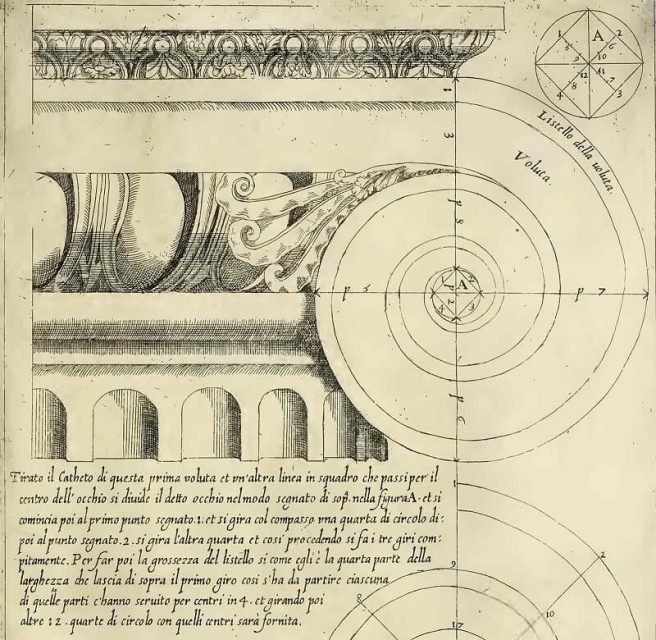 A
1
2
6
5
9
10
12
11
8
7
4
3
Listello della voluta.
Voluta.
1
3
p 8
A
p 5
p 7
p 6
Tirato il Catheto di questa prima voluta et un'altra linea in squadro che passi per il
centro dell'occhio si diuide il detto occhio nel modo segnato di sop. nella figura A. et si
comincia poi al primo punto segnato .1. et si gira col compasso una quarta di circolo di:
poi al punto segnato .2. si gira l'altra quarta et cosi procedendo si fa i tre giri com=
pitamente. Per far poi la grossezza del listello si come egli è la quarta parte della
larghezza che lascia di sopra il primo giro cosi s'ha da partire ciascuna
di quelle parti c'hanno seruito per centri in 4. et girando poi
altre 12. quarte di circolo con quelli centri sarà fornita.
1
2
9
8
10
17